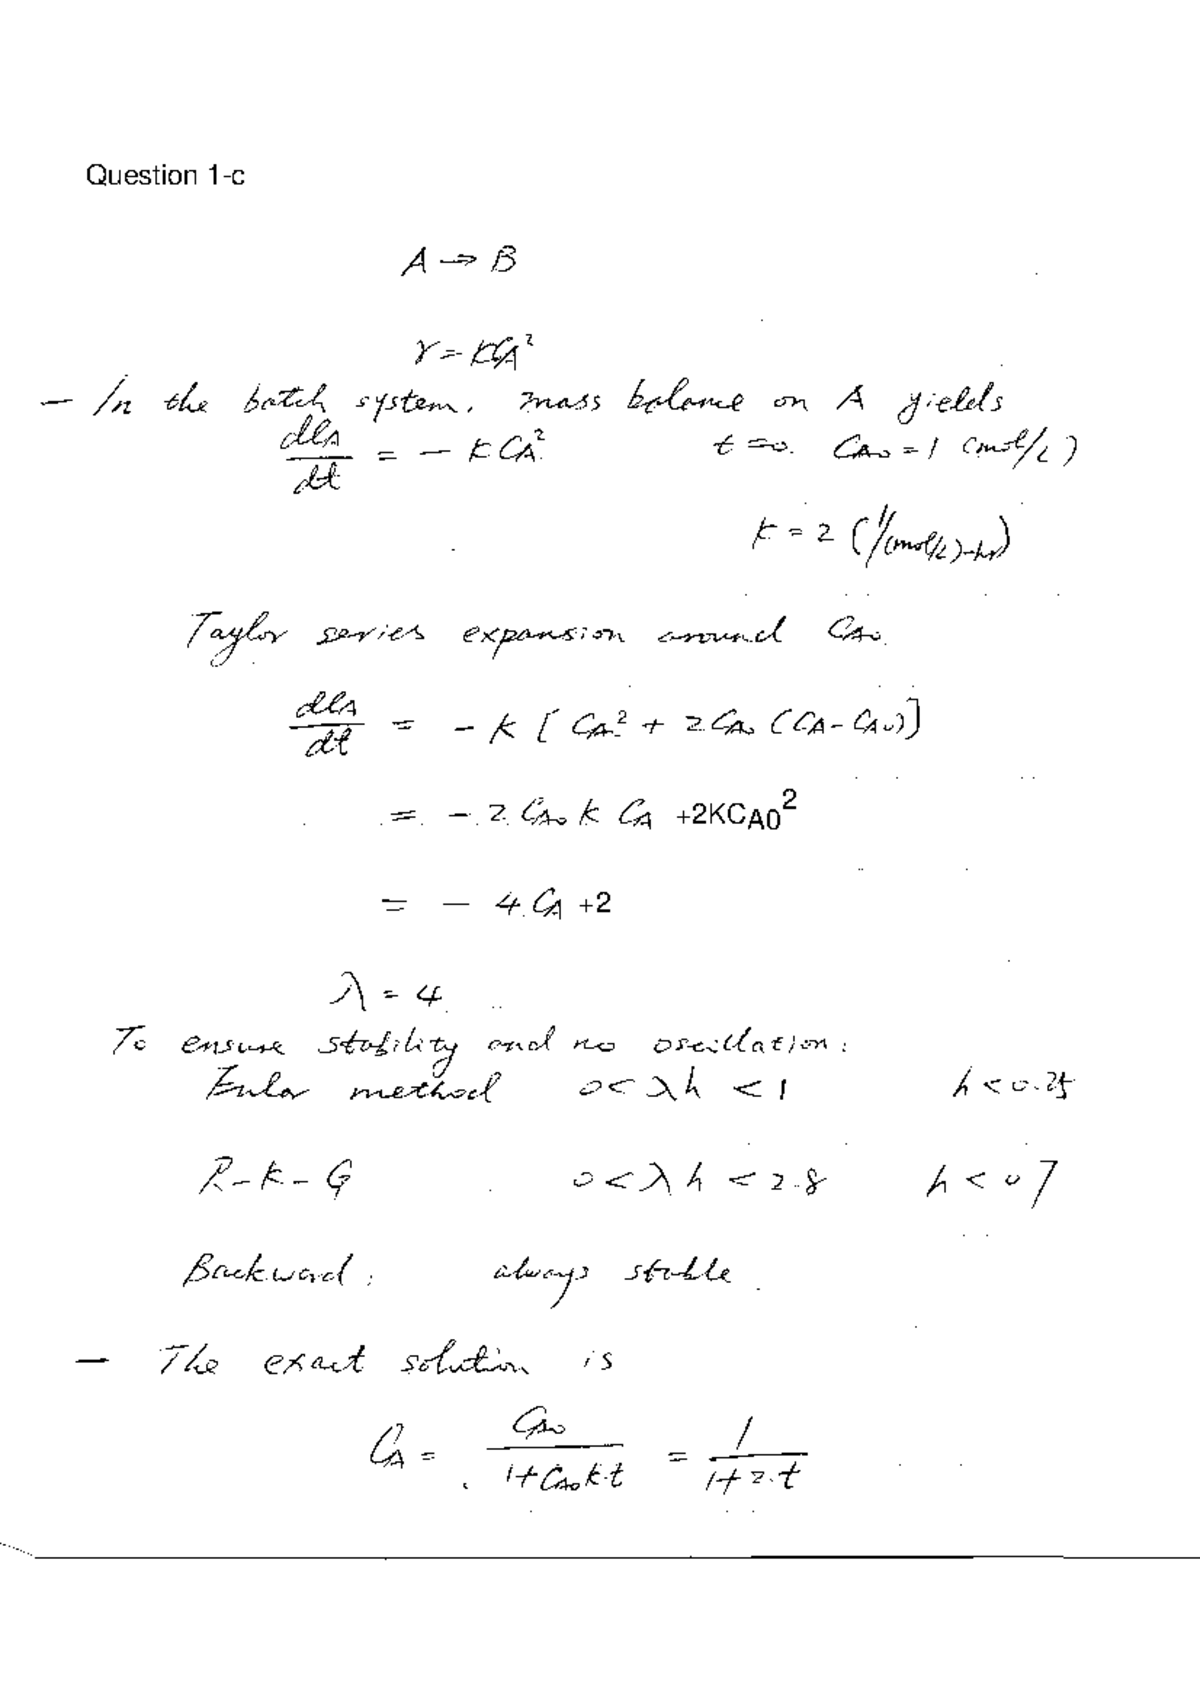 Question 1-c
A → B
r = KCA²
– In the batch system, mass balance on A yields
dCA/dt = – KCA² t=0. CA0 = 1 (mol/L)
K = 2 (1/(mol/L)-hr)
Taylor series expansion around CA0.
dCA/dt = – K [ CA0² + 2CA0 (CA – CA0)]
= – 2 CA0 K CA +2KCA0²
= – 4 CA +2
λ = 4
To ensure stability and no oscillation:
Eular method 0 < λh < 1 h < 0.25
R–K–G 0 < λh < 2.8 h < 0.7
Backward: always stable.
– The exact solution is
CA = CA0/(1+CA0k·t) = 1/(1+2·t)